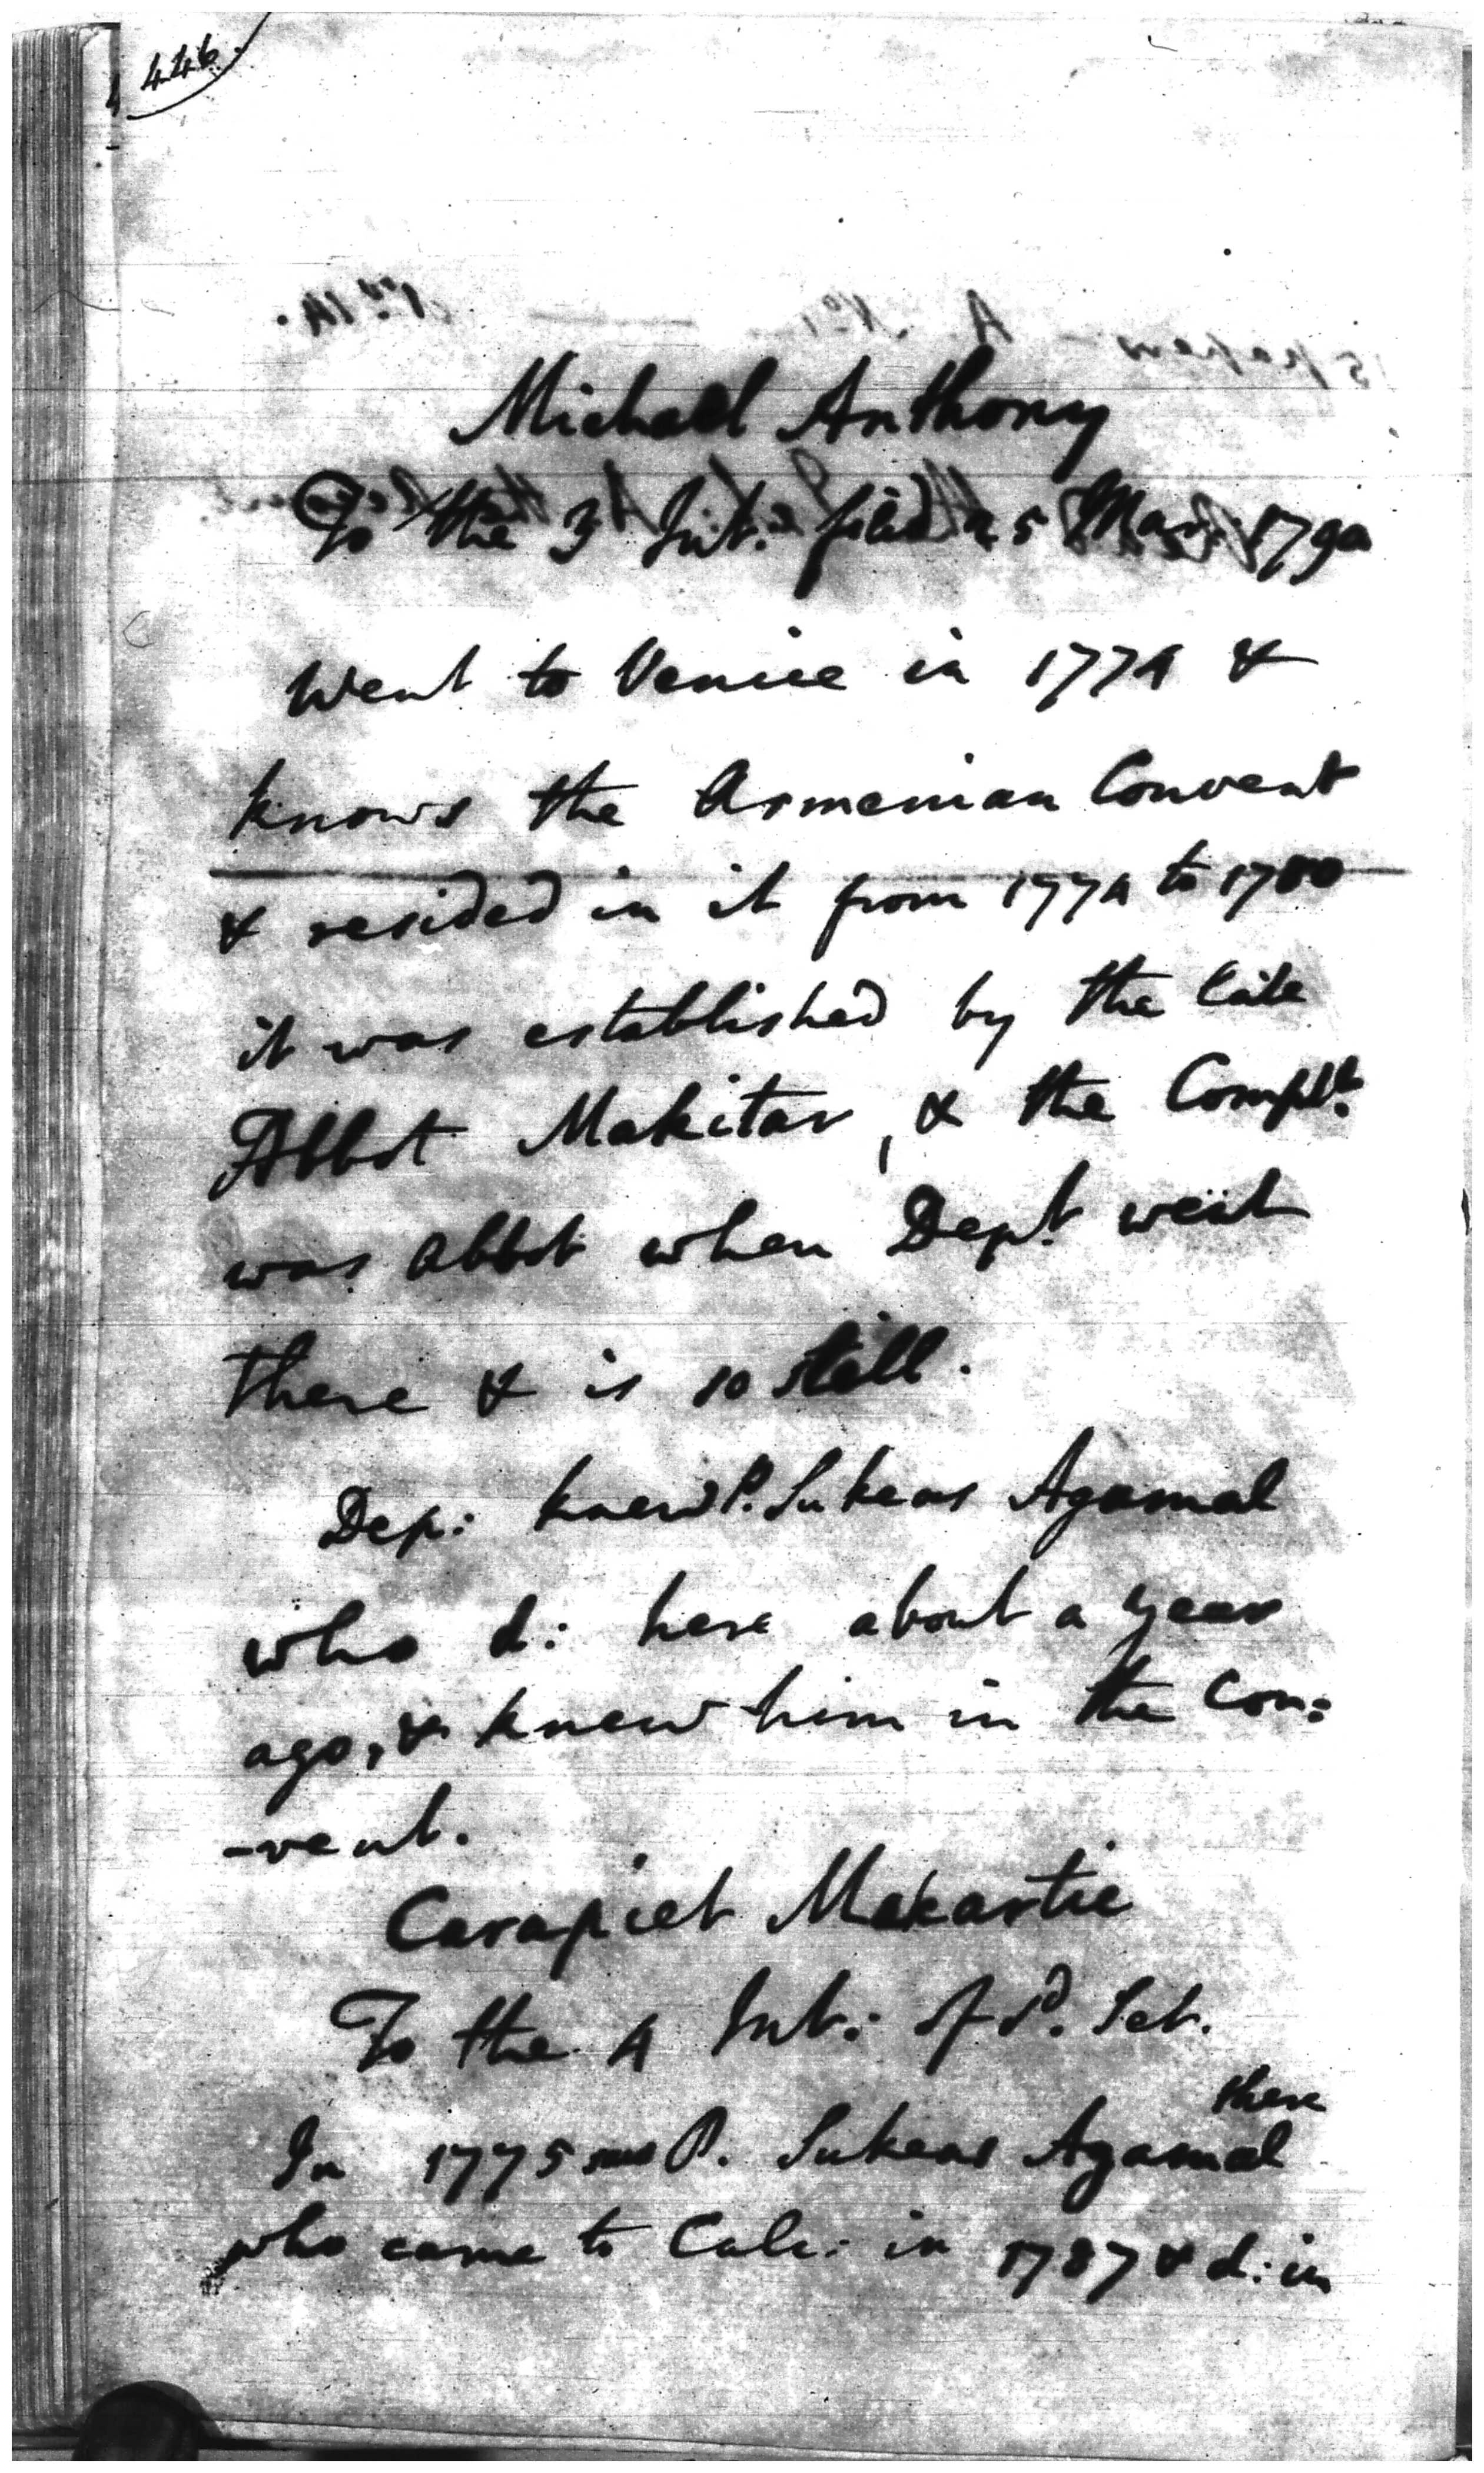 446
Michael Anthony
To the 3 Int: filed 25 Mar: 1790
Went to Venice in 1774 &
knows the Armenian Convent
& resided in it from 1774 to 1780
it was established by the late
Abbot Makitar, & the Complt.
was abbot when Dept. went
there & is so still.
Dep: knew P. Sukeas Agamal
who d: here about a year
ago, & knew him in the Con=
-vent.
Carapiet Makartie
To the 4 Int: of sd. Set.
there
In 1775 saw P. Sukeas Agamal
who came to Calc: in 1787 & d: in